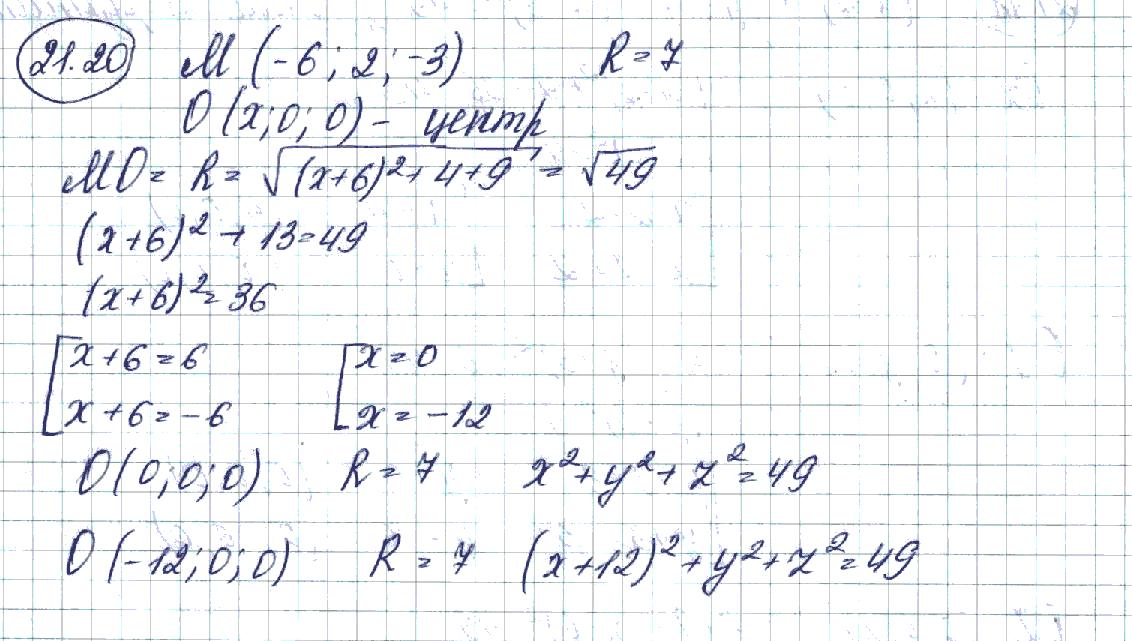 21.20 M (-6; 2; -3) R = 7
O (x; 0; 0) - центр
MO = R = √((x+6)² + 4 + 9) = √49
(x+6)² + 13 = 49
(x+6)² = 36
[x+6 = 6 [x = 0
[x+6 = -6 [x = -12
O (0; 0; 0) R = 7 x² + y² + z² = 49
O (-12; 0; 0) R = 7 (x+12)² + y² + z² = 49